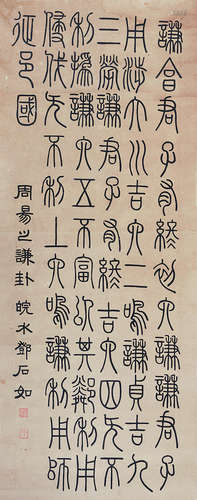 謙亨君子有終初六謙謙君子
用涉大川吉六二鳴謙貞吉九
三勞謙君子有終吉六四无不
利撝謙六五不富以其鄰利用
侵伐无不利上六鳴謙利用師
征邑國
周易之謙卦 皖水鄧石如